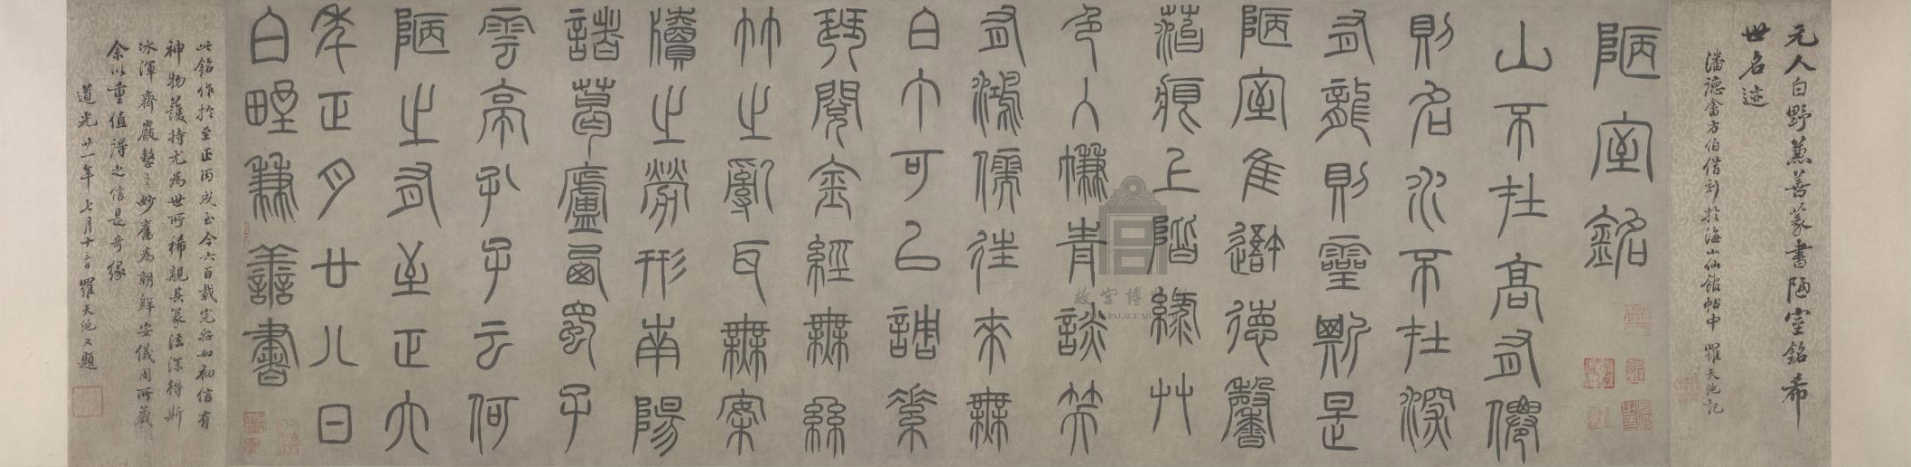 元人白野兼善篆書陋室銘希
世名迹
潘德畬方伯借刻於海山仙館帖中 羅天池記
陋室銘
山不在高有僊
則名水不在深
有龍則靈斯是
陋室惟吾德馨
苔痕上階綠艸
色入簾青談笑
有鴻儒往來無
白丁可以調素
琴閱金經無絲
竹之亂耳無案
牘之勞形南陽
諸葛廬西蜀子
雲亭孔子云何
陋之有至正六
年正月廿八日
白野兼善書
此銘作於至正丙戌至今六百載完好如初信有
神物護持尤為世所稀覯其篆法深得斯
冰渾齊嚴整之妙舊為朝鮮安儀周所藏
余以重值得之信是奇緣
道光廿一年七月十二日羅天池又題
故宮博
PALACE M